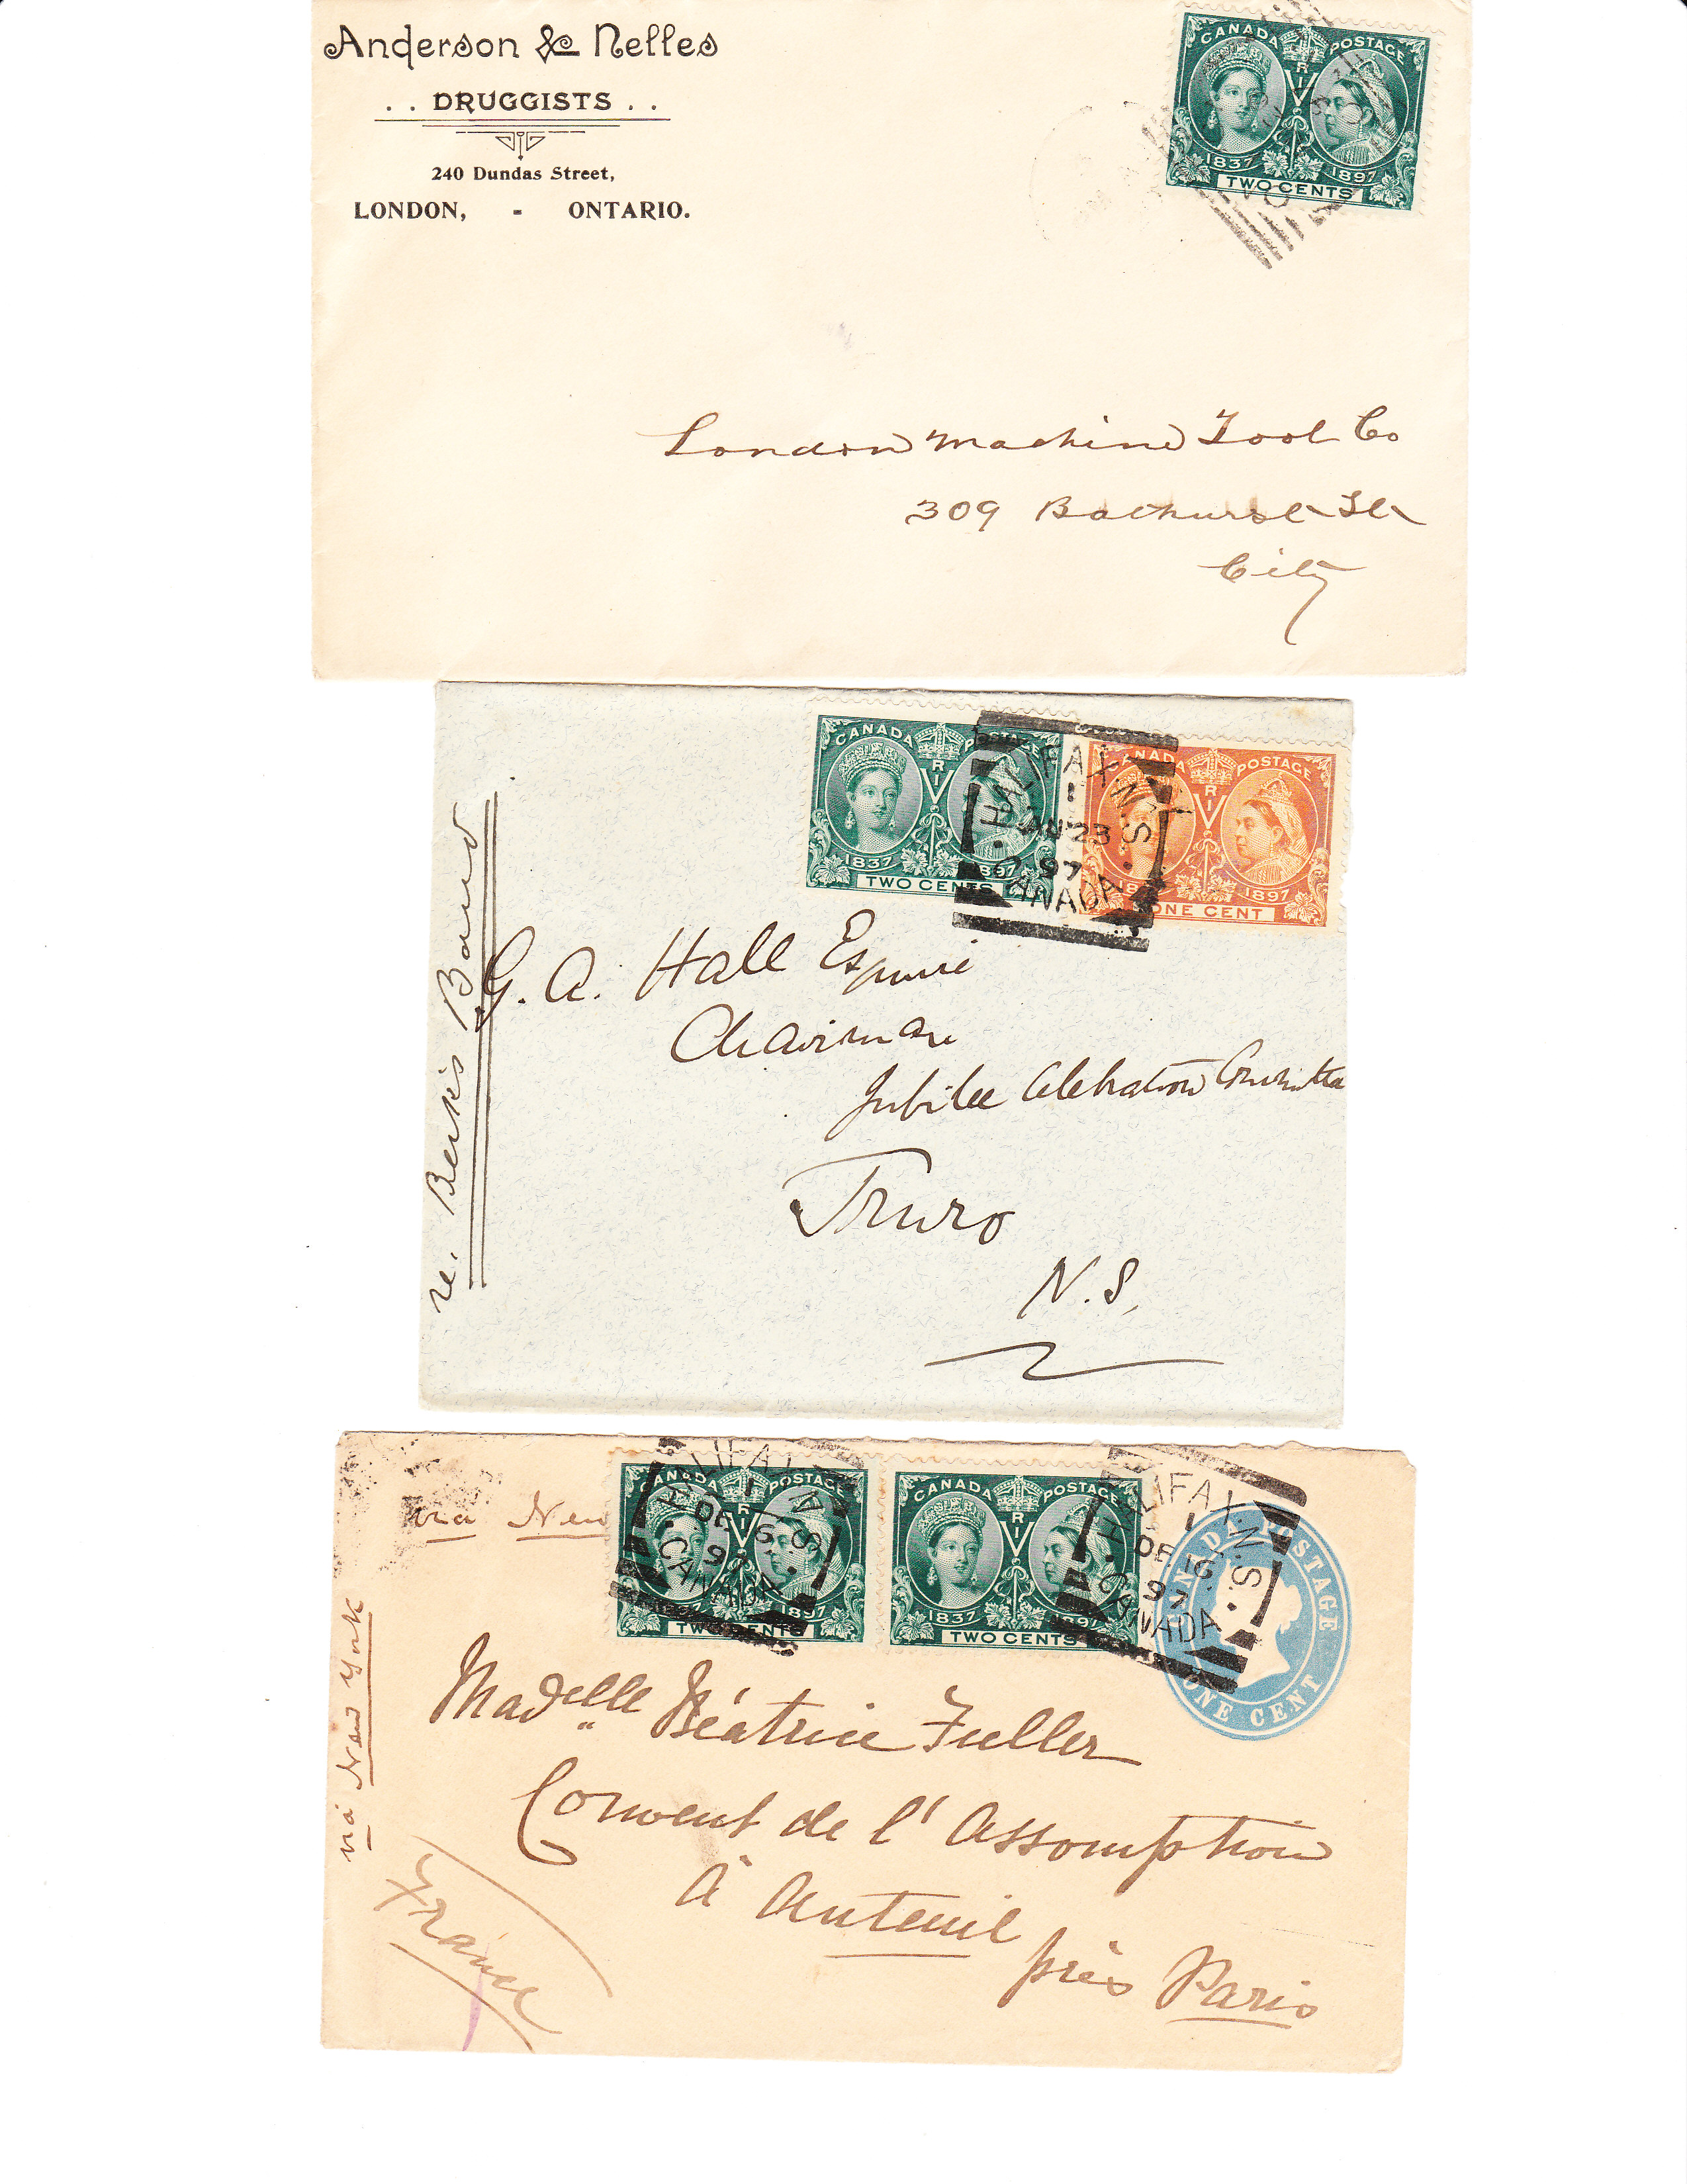 Anderson & Nelles
. . DRUGGISTS . .
240 Dundas Street,
LONDON, - ONTARIO.
CANADA POSTAGE
V R I
1837 1897
TWO CENTS
London Machine Tool Co
309 Bathurst St
City
CANADA POSTAGE
V R I
1837 1897
TWO CENTS
CANADA POSTAGE
V R I
1897
ONE CENT
HALIFAX. N.S.
1
23
97
CANADA
re. Band
G. A. Hall Esquire
Chairman
Jubilee Celebration Committee
Truro
N.S.
via New
via New York
CANADA POSTAGE
V R I
1897
TWO CENTS
HALIFAX. N.S.
1
DE 16
97
CANADA
CANADA POSTAGE
V R I
1837 1897
TWO CENTS
HALIFAX. N.S.
1
DE 16
97
CANADA
CANADA POSTAGE
ONE CENT
Madelle Béatrice Fuller
Convent de l'Assomption
à Auteuil
près Paris
France